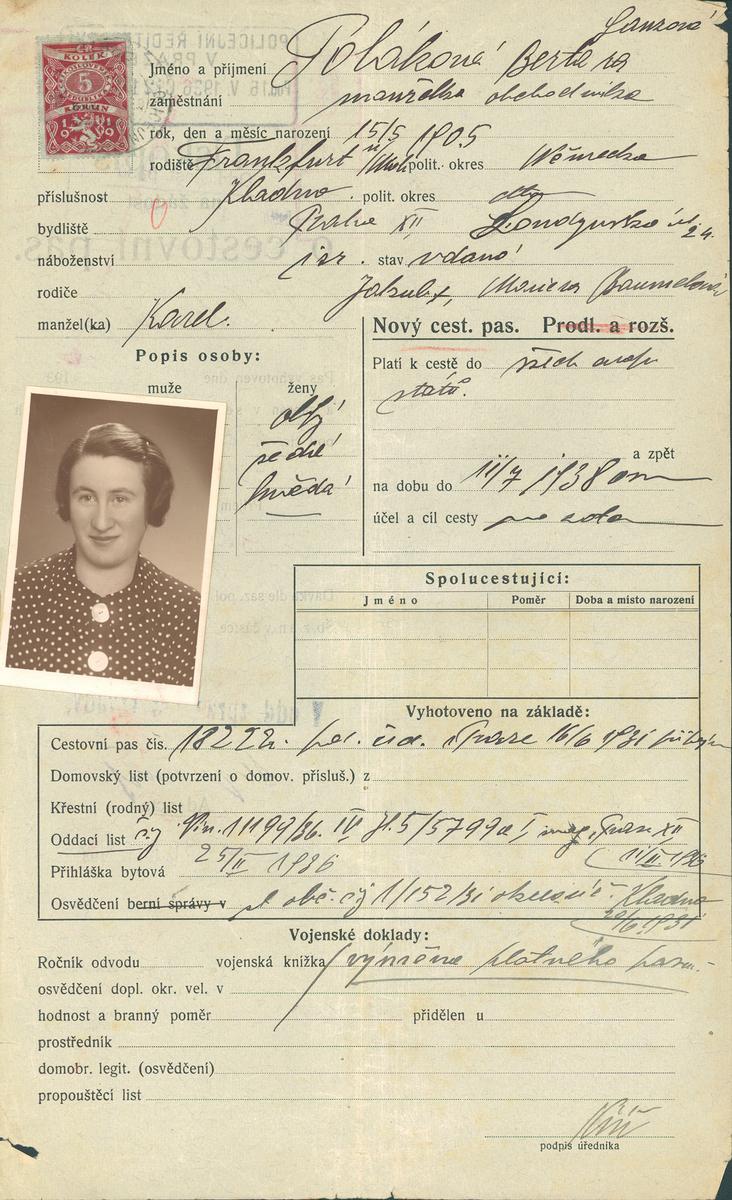 5
KORUN
Jméno a příjmení Poláková Berta
zaměstnání manželka obchodníka
rok, den a měsíc narození 15/5 1905
rodiště Frankfurt polit. okres Německo
příslušnost Kladno polit. okres
bydliště Praha XII, Londýnská 24.
náboženství izr. stav vdaná
rodiče Jakub, Baumelová
manžel(ka) Karel.
Nový cest. pas. Prodl. a rozš.
Popis osoby:
muže ženy
Platí k cestě do všech evrop.
států.
šedé
hnědá
a zpět
na dobu do 11/7 1938
účel a cíl cesty
Spolucestující:
Jméno Poměr Doba a místo narození
Vyhotoveno na základě:
Cestovní pas čís. pol. řed. Praze 16/6 1931
Domovský list (potvrzení o domov. přísluš.) z
Křestní (rodný) list
Oddací list čj. 11199/36 IV mag. Praze XII
11/II 1936
Přihláška bytová 25/II 1936
Osvědčení berní správy v obč. čj 1/152/31 Kladno
20/6.1931
Vojenské doklady:
Ročník odvodu vojenská knížka výměna platného pasu.
osvědčení dopl. okr. vel. v
hodnost a branný poměr přidělen u
prostředník
domobr. legit. (osvědčení)
propouštěcí list
podpis úředníka